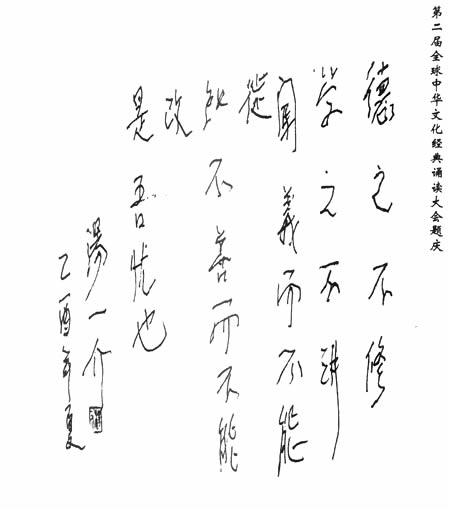 第二届全球中华文化经典诵读大会题庆
德之不修
学之不讲
聞義而不能
徙
知不善而不能
改
是吾忧也
湯一介
乙酉年夏